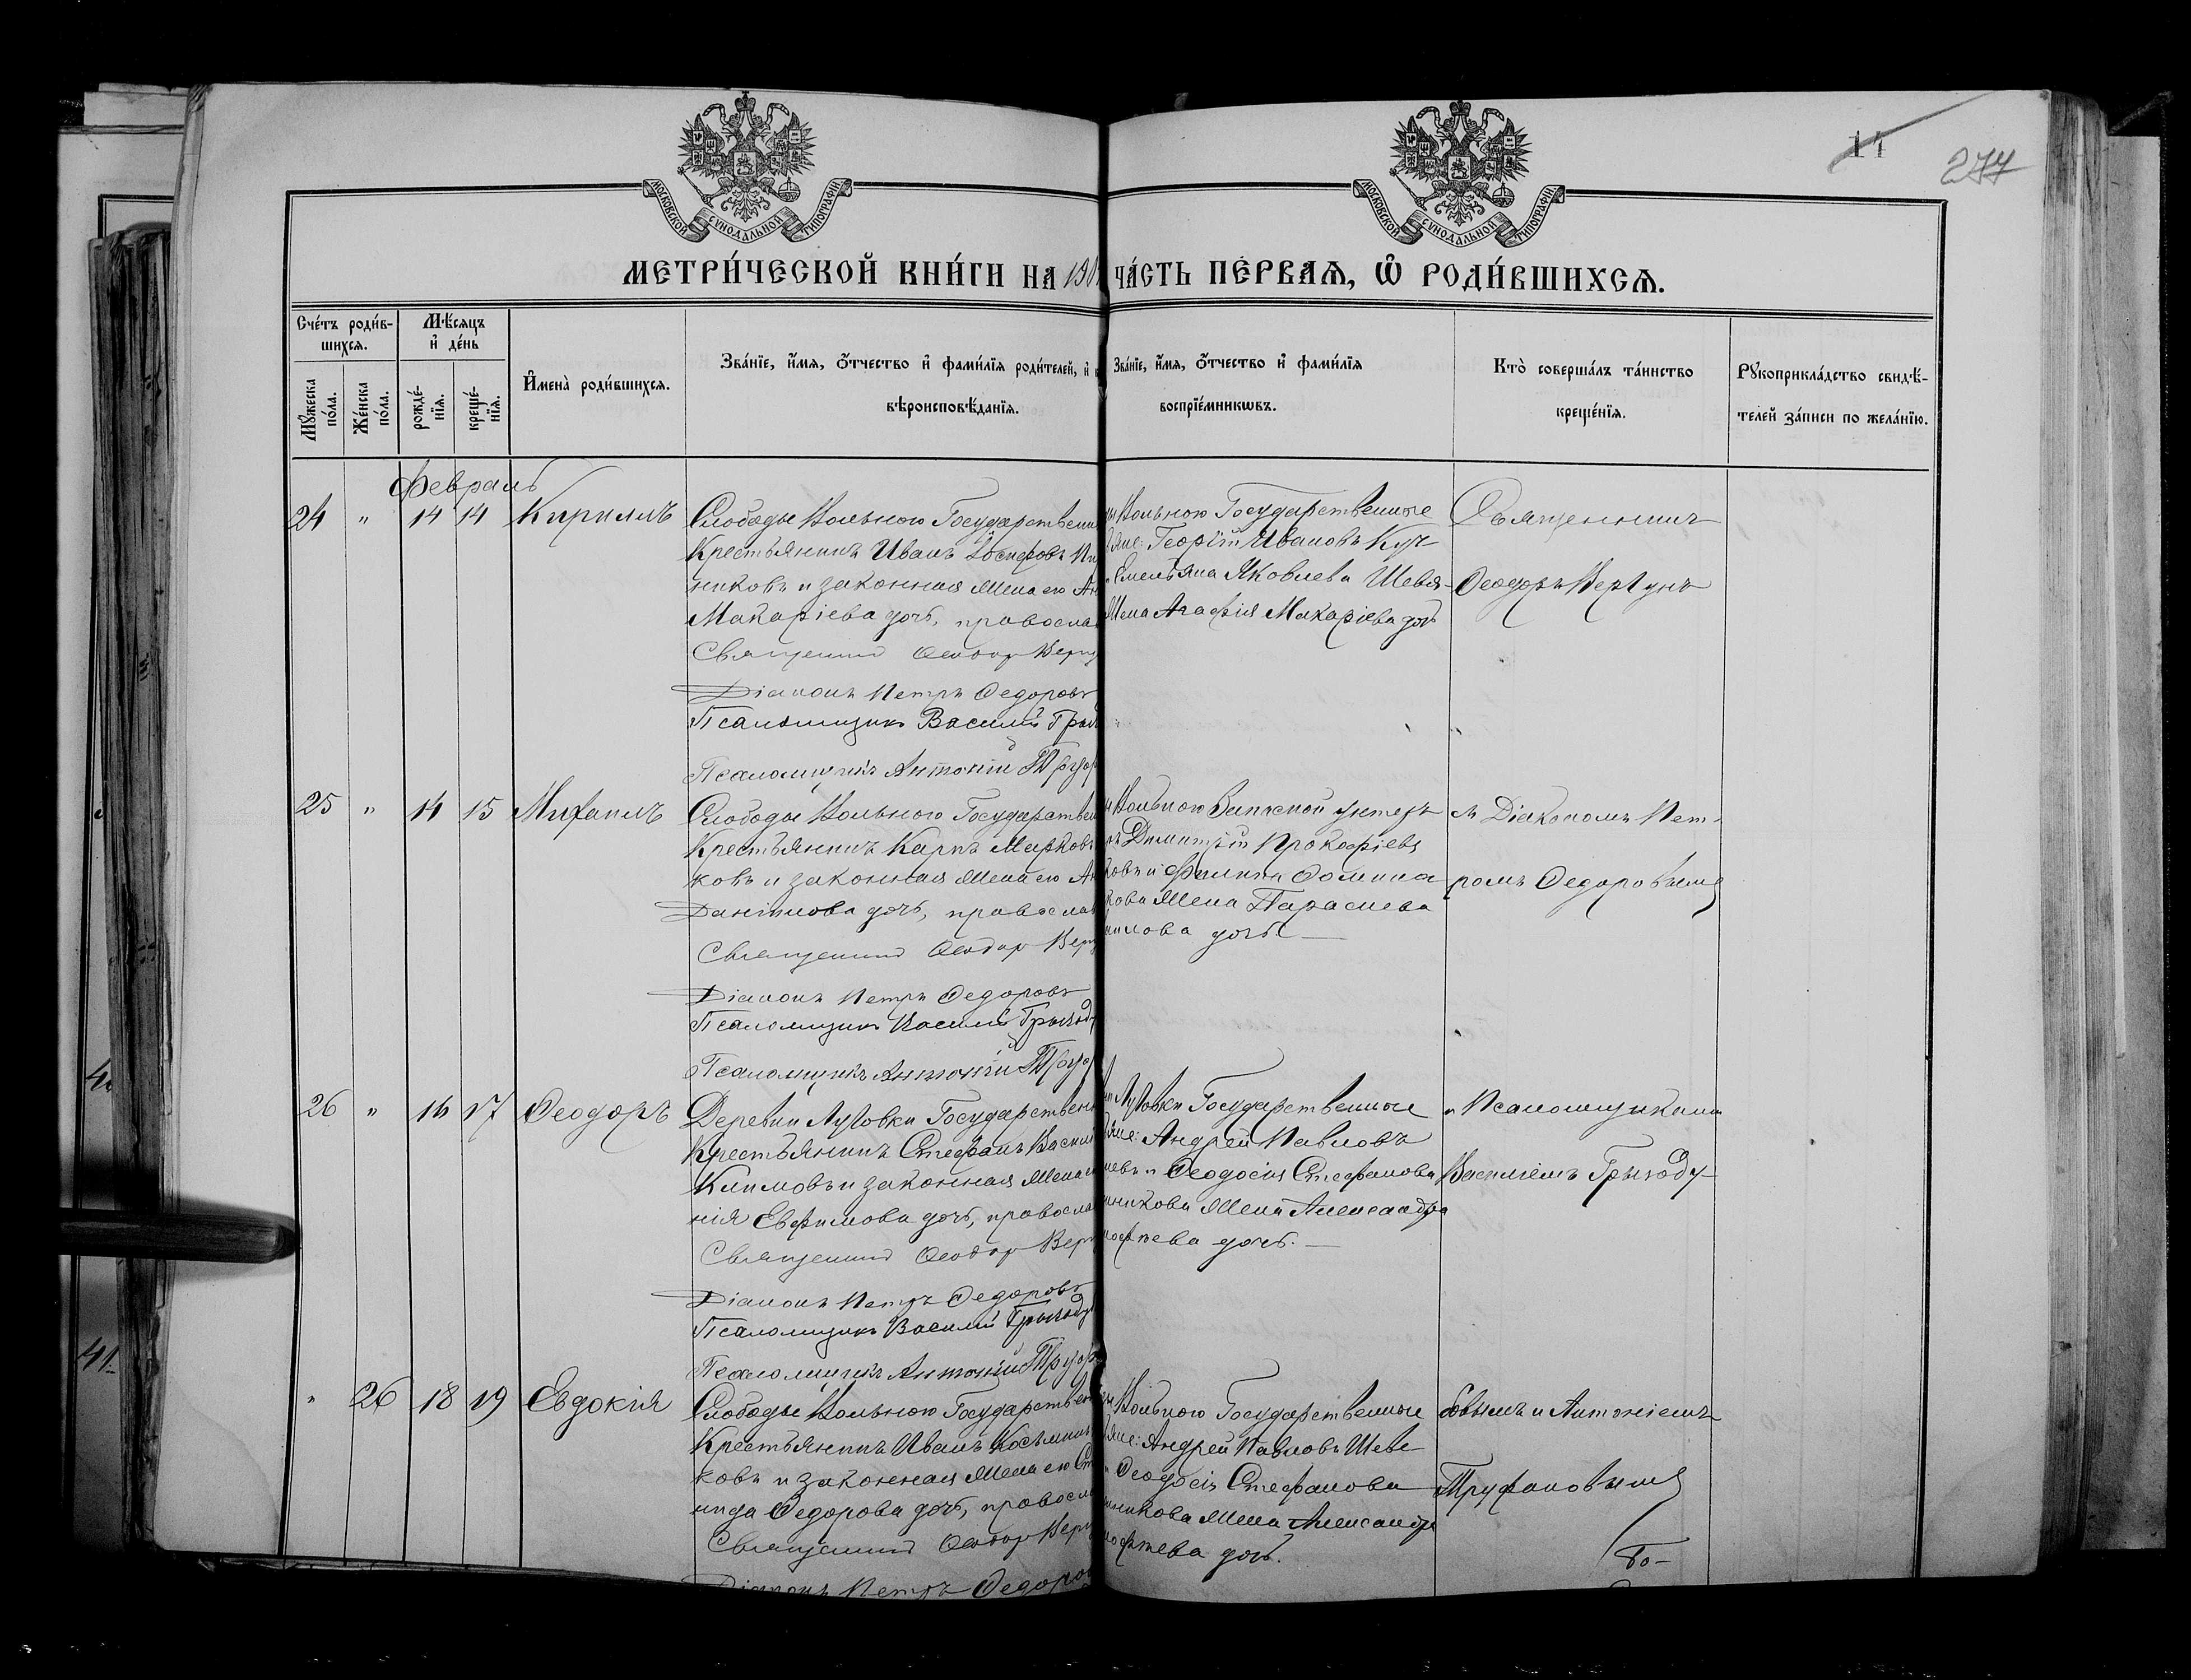 МОСКОВСКОЙ СѴНОДАЛЬНОЙ ТИПОГРАФІИ
МОСКОВСКОЙ СѴНОДАЛЬНОЙ ТИПОГРАФІИ
274
МЕТРИ́ЧЕСКОЙ КНИ́ГИ НА 190
ЧА́СТЬ ПЕ́РВАѦ, Ѽ РОДИ́ВШИХСѦ.
Сче́тъ роди́в-
шихсѧ.
Мꙋ́жеска по́ла.
Же́нска по́ла.
Мѣ́сѧцъ
и҆ де́нь
рожде́-
нїѧ.
креще́-
нїѧ.
И҆мена̀ роди́вшихсѧ.
Зва́нїе, и҆́мѧ, ѻ҆́тчество и҆ фами́лїѧ роди́телей, и҆ к
вѣроисповѣ́данїѧ.
Зва́нїе, и҆́мѧ, ѻ҆́тчество и҆ фами́лїѧ
воспрїе́мникѡвъ.
Кто̀ соверша́лъ та́инство
креще́нїѧ.
Рꙋкоприкла́дство свидѣ́-
телей за́писи по жела́нїю.
Февраль
24 " 14 14 Кириллъ
Слободы Вольного Государствен
Крестьянинъ Иванъ Іосифовъ
никовъ и законная жена его Ан
Макаріева дочь, православ
Священник Феодор Верг
Діаконъ Петръ Федоровъ
Псаломщикъ Василій Грыз
Псаломщикъ Антоній Труф
ы Вольного Государственные
яне: Георгій Ивановъ Куч-
Емельяна Яковлева Шевя-
жена Агафія Макаріева дочь
Священникъ
Феодоръ Вергунъ
25 " 14 15 Михаилъ
Слободы Вольного Государствен
Крестьянинъ Карпъ Марковъ
ковъ и законная жена его Ан
Даніилова дочь, православ
Священник Феодор Верг
Діаконъ Петръ Федоровъ
Псаломщикъ Василій Грызод
Псаломщикъ Антоній Труф
Вольного Запасной унтеръ
ръ Димитрій Прокофіевъ
ковъ и Филиппа Фомина
кова жена Параскева
илова дочь
съ Діакономъ Пет-
ромъ Федоровымъ
26 " 16 17 Феодоръ
Деревни Луговки Государствен
Крестьянинъ Стефанъ Васил
Климовъ и законная жена е
нія Евфимова дочь, православ
Священник Феодор Верг
Діаконъ Петръ Федоровъ
Псаломщикъ Василій Грызоду
Псаломщикъ Антоній Труф
Луговки Государственные
яне: Андрей Павловъ
невъ и Феодосія Стефанова
никова жена Александра
офьева дочь.
и Псаломщиками
Василіемъ Грызоду-
" 26 18 19 Евдокія
Слободы Вольного Государствен
Крестьянинъ Иванъ Косьминъ
ковъ и законная жена его Ст
нида Федорова дочь, правосл
Священник Феодор Верг
Діаконъ Петръ Федоров
Вольного Государственные
яне: Андрей Павловъ Шеве
Феодосія Стефанова
никова жена Александра
офьева дочь.
бовымъ и Антоніемъ
Труфановымъ